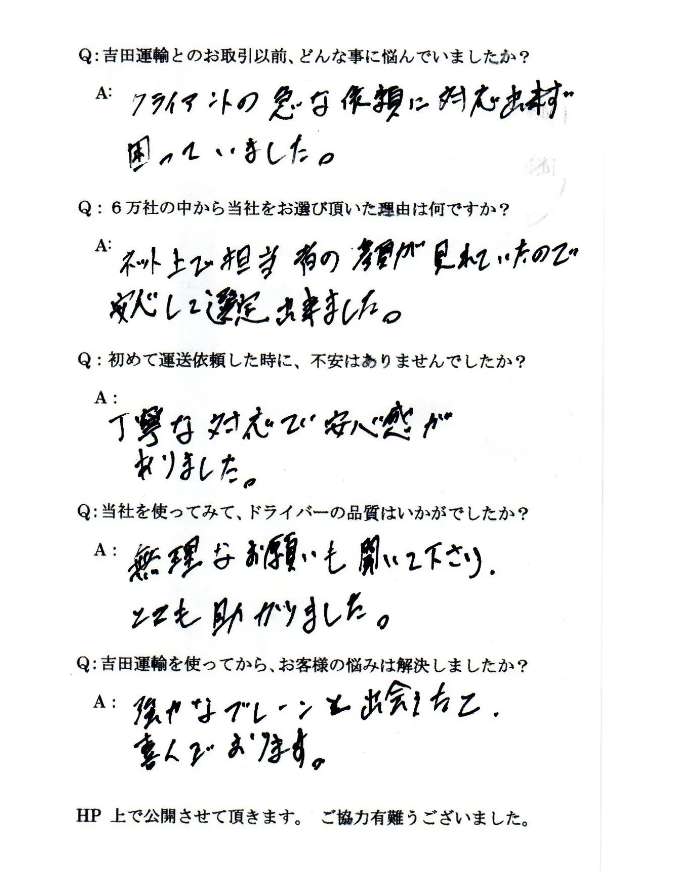 Q:吉田運輸とのお取引以前、どんな事に悩んでいましたか?
A: クライアントの急な依頼に対応出来ず
困っていました。
Q:6万社の中から当社をお選び頂いた理由は何ですか?
A: ネット上で担当者の顔が見れていたので
安心して選定出来ました。
Q:初めて運送依頼した時に、不安はありませんでしたか?
A:
丁寧な対応で安心感が
ありました。
Q:当社を使ってみて、ドライバーの品質はいかがでしたか?
A: 無理なお願いも聞いて下さり、
とても助かりました。
Q:吉田運輸を使ってから、お客様の悩みは解決しましたか?
A: 強力なブレーンと出会えたと、
喜んでおります。
HP 上で公開させて頂きます。 ご協力有難うございました。